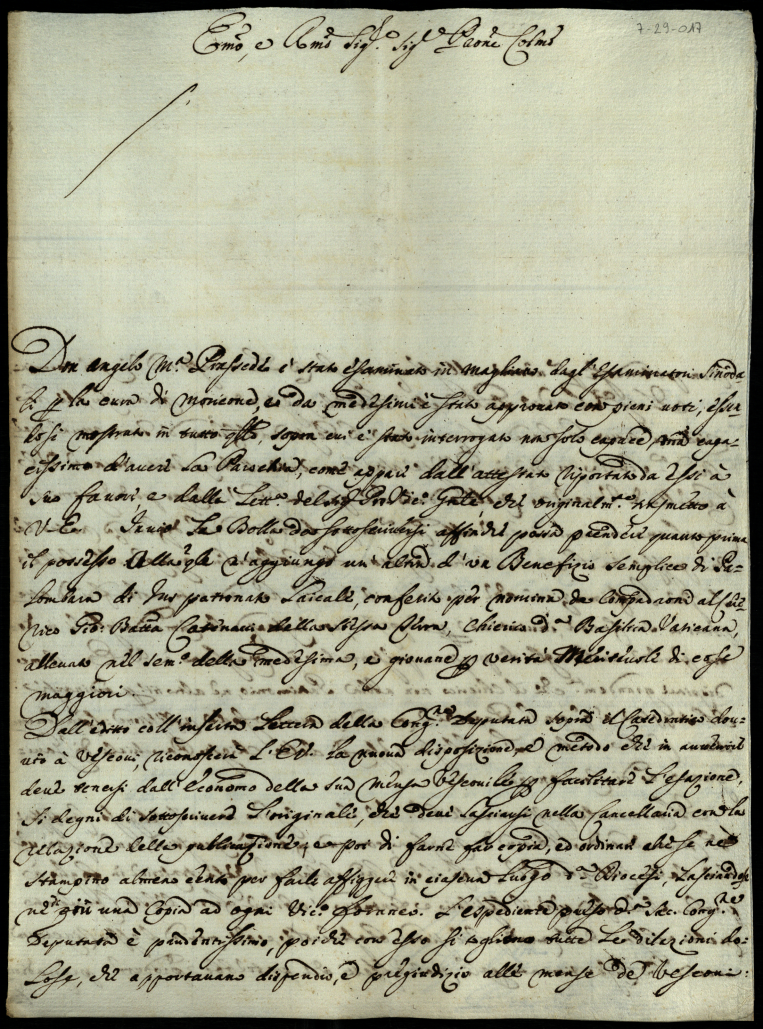 7-29-017
Emo, e Rmo Sig.r Sig.r Prone Colmo
Don Angelo M.a Prassede è stato esaminato in Magliano dagl' Esaminatori Sinoda-
li p la cura di Moricone, e da medesimi è stato approvato con pieni voti, essen-
dosi mostrato in tutto sopra cui è stato interrogato non solo capace, mà capa-
cissimo d'avere la Parochia, come appare dall'attestato riportato da essi à
suo favore, e dalla Lett.a del Sig.r Pro Vic.o Gnle che originalm.e trasmetto à
V. E. Invio la Bolla da sottoscriversi affinche possa prendere quanto prima
il possesso Alla qle n'aggiungo un'altra d'un Beneficio semplice di Pa-
lombara di Jus patronato Laicale, conferito per nomina de Compadroni al Chie-
rico Gio: Batta della stessa Terra, Chierico d.a Basilica Vaticana,
allevato nel Sem.o della medesima, e giovane p verità Meritevole di cose
maggiori.
Dall'editto coll'inserta Lettera della Cong.ne Deputata sopra il Catedratico dov-
uto à Vescovi, riconoscerà l'E.V. la nuova disposizione, e metodo che in avvenire
deve tenersi dall'economo della sua mensa Vescovile p facilitare l'esazione,
si degni di sottoscrivere l'originale, che deve lasciarsi nella Cancellaria con la
relazione della publicazione, e poi di farne far copia, ed ordinare che se ne
stampino almeno cento per farli affiggere in ciascun Luogo d.a Diocesi, lasciandosene
una Copia ad ogni Vic.o foraneo. L'espediente preso d.a Sac. Cong.ne
Deputata è prudentissimo, poiche con esso si togliono tutte le dilazioni do-
lose, che apportavano dispendio, e pregiudizio alle mense de' Vescovi: